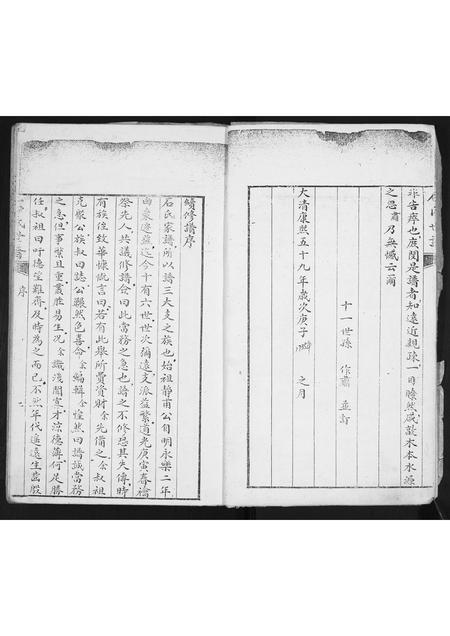 非告齊也庶閱是譜者知遠近親疎一目瞭然咸敦木本水源
之思肅乃無憾云爾
十一世孫 作肅 並訂
大清康熙五十九年歲次庚子 之月
續修譜序
石氏家譜所以譜三大支之族也始祖靜甫公自明永樂二年
由棗遷茲迄今十有六世世次彌遠支派益繁道光庚寅春禴
祭先人共議修譜僉曰此當務之急也譜之不修恐其失傳時
有族侄致華慷慨言曰若有此舉所費資財余先備之余叔祖
克聚公族叔曰誌公顯然色喜命余編輯余惶然曰譜誠當務
之急但事繁且重農胜易生況余識淺聞寡才涼德薄何足勝
任叔祖曰吁德望難齊及時為之而已不然年代遙遠生齒殷
氏世譜 序